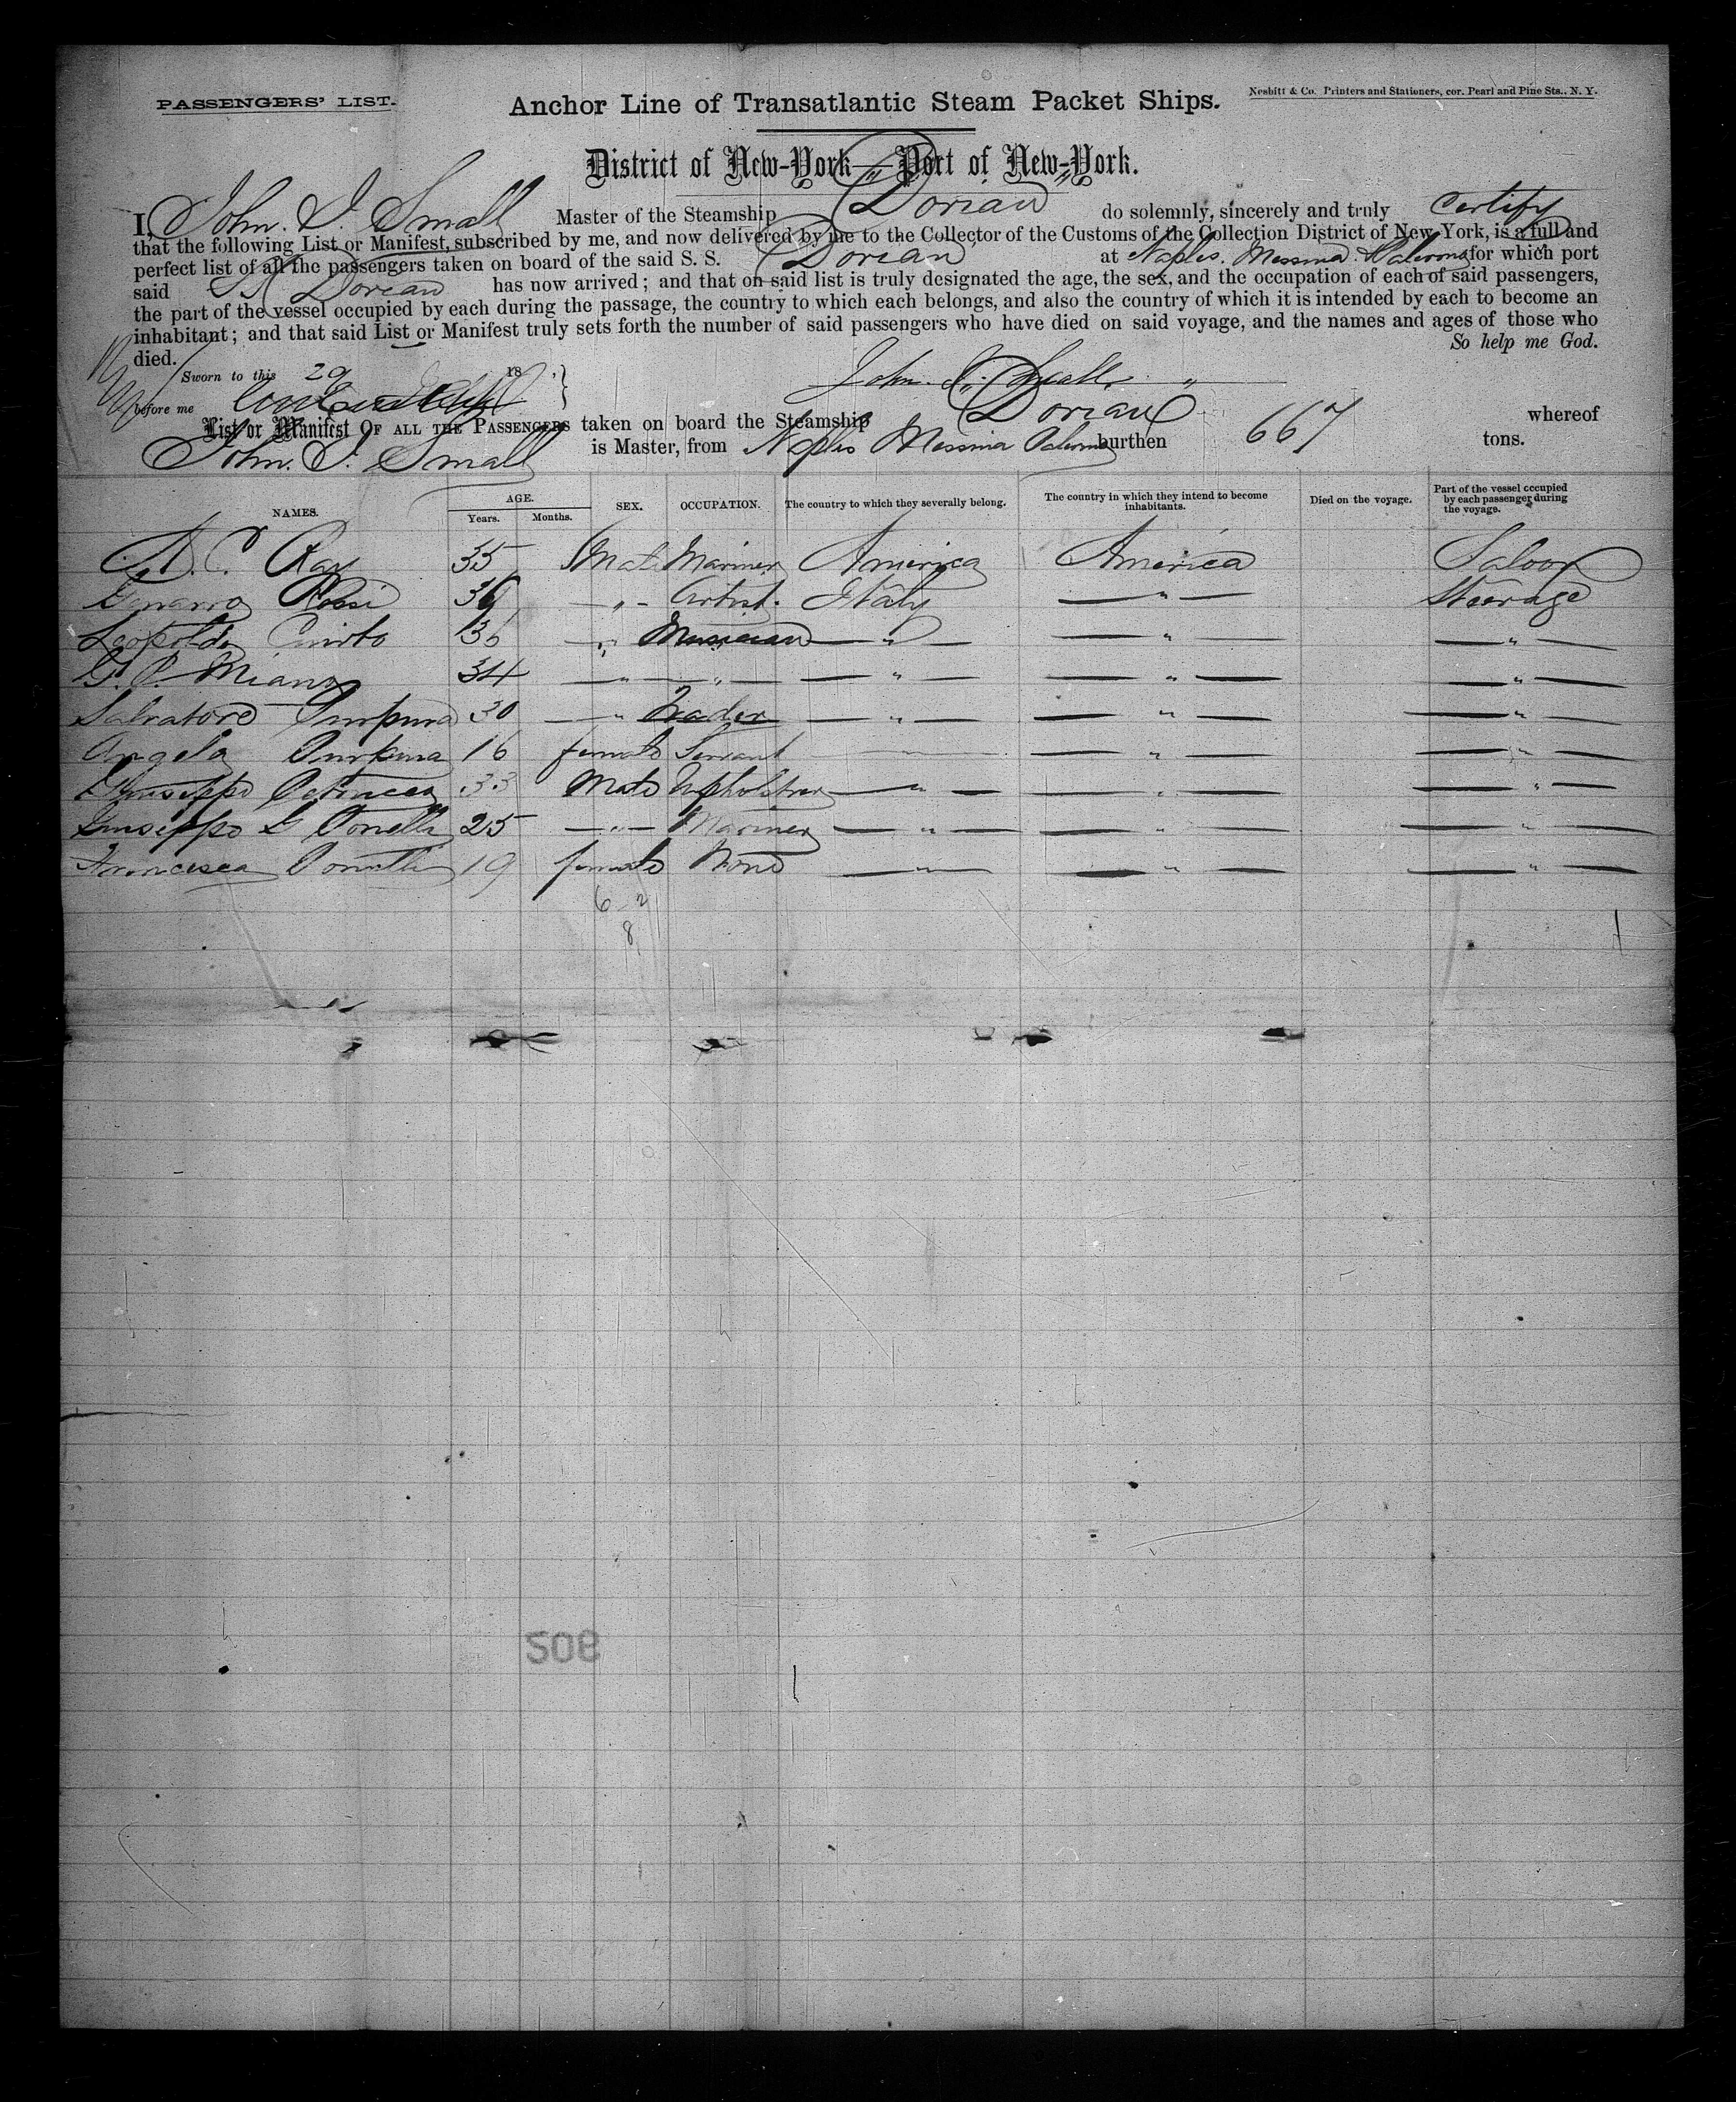 PASSENGERS' LIST.
Anchor Line of Transatlantic Steam Packet Ships.
Nesbitt & Co. Printers and Stationers, cor. Pearl and Pine Sts., N. Y.
District of New-York—Port of New-York.
I, John. I. Small Master of the Steamship "Dorian" do solemnly, sincerely and truly Certify
that the following List or Manifest, subscribed by me, and now delivered by me to the Collector of the Customs of the Collection District of New York, is a full and
perfect list of all the passengers taken on board of the said S. S. Dorian at Naples. Messina. Palermo for which port
said SS Dorian has now arrived; and that on said list is truly designated the age, the sex, and the occupation of each of said passengers,
the part of the vessel occupied by each during the passage, the country to which each belongs, and also the country of which it is intended by each to become an
inhabitant; and that said List or Manifest truly sets forth the number of said passengers who have died on said voyage, and the names and ages of those who
died. So help me God.
Sworn to this 29 18
John. I. Small
before me
List or Manifest OF ALL THE PASSENGERS taken on board the Steamship Dorian whereof
John. I. Small is Master, from Naples Messina Palermo burthen 667 tons.
NAMES. AGE. Years. Months. SEX. OCCUPATION. The country to which they severally belong. The country in which they intend to become inhabitants. Died on the voyage. Part of the vessel occupied by each passenger during the voyage.
A. C. Ray 35 Male Mariner America America Saloon
Genarro Rossi Artist. Italy — " — Steerage
Leopoldo 36 — " — Musician — " — — " — — " —
G. P. Miano 34 — " — — " — — " — — " — — " —
Salvatore Purpura 30 — " Trader — " — — " — — " —
Angela Purpura 16 female Servant — " — — " — — " —
Giuseppe 33 Male Upholstrer — " — — " — — " —
Giuseppe G Tonella 25 — " — Mariner — " — — " — — " —
Francesca Tonella 19 female None — " — — " — — " —
6 2
8
902